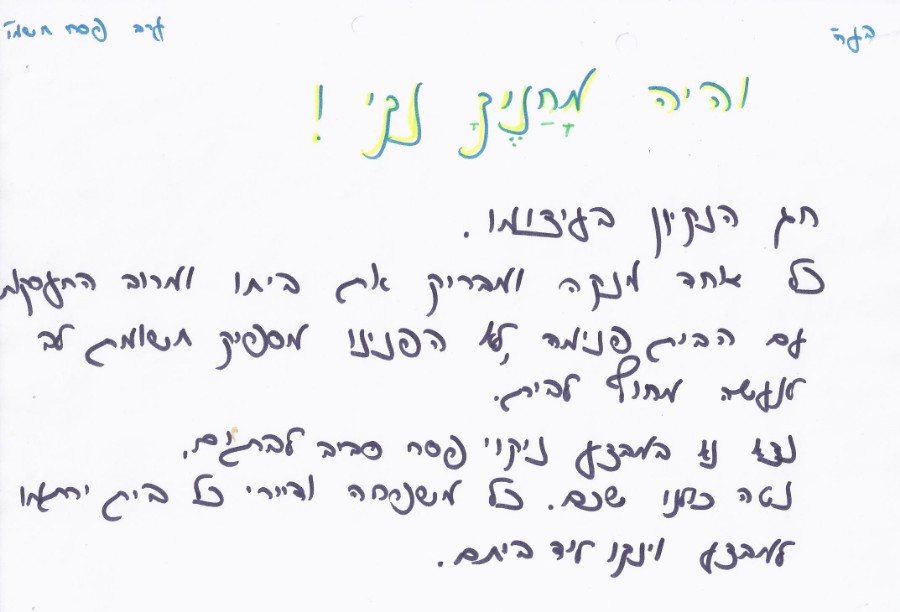 בעה"
ערב פסח תשמ"ו
והיה מַחֲנֶיךָ נקי !
חג הנקיון בעיצומו.
כל אחד מנקה ומבריק את ביתו ומרוב התעסקות
עם הבית פנימה, לא הפנינו מספיק תשומת לב
לנעשה מחוץ לבית.
נצא נא במבצע ניקוי פסח סביב לבתים,
נטה כולנו שכם. כל משפחה ודיירי כל בית ירתמו
למבצע וינקו ליד ביתם.